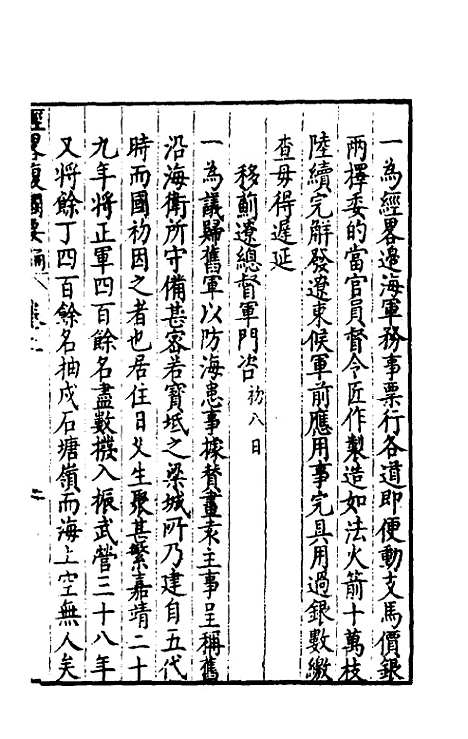 一為經畧邊海軍務事票行各道即便動支馬價銀
兩擇委的當官員督令匠作製造如法火箭十萬枝
陸續完解發遼東候軍前應用事完具用過銀數繳
查毋得遲延
移薊遼總督軍門咨初八日
一為議歸舊軍以防海患事據贊畫袁主事呈稱舊
沿海衛所守備甚密若寶坻之梁城所乃建自五代
時而國初因之者也居住日乆生聚甚繁嘉靖二十
九年將正軍四百餘名盡數撥入振武營三十八年
又將餘丁四百餘名抽戍石塘嶺而海上空無人矣
經畧復國要編